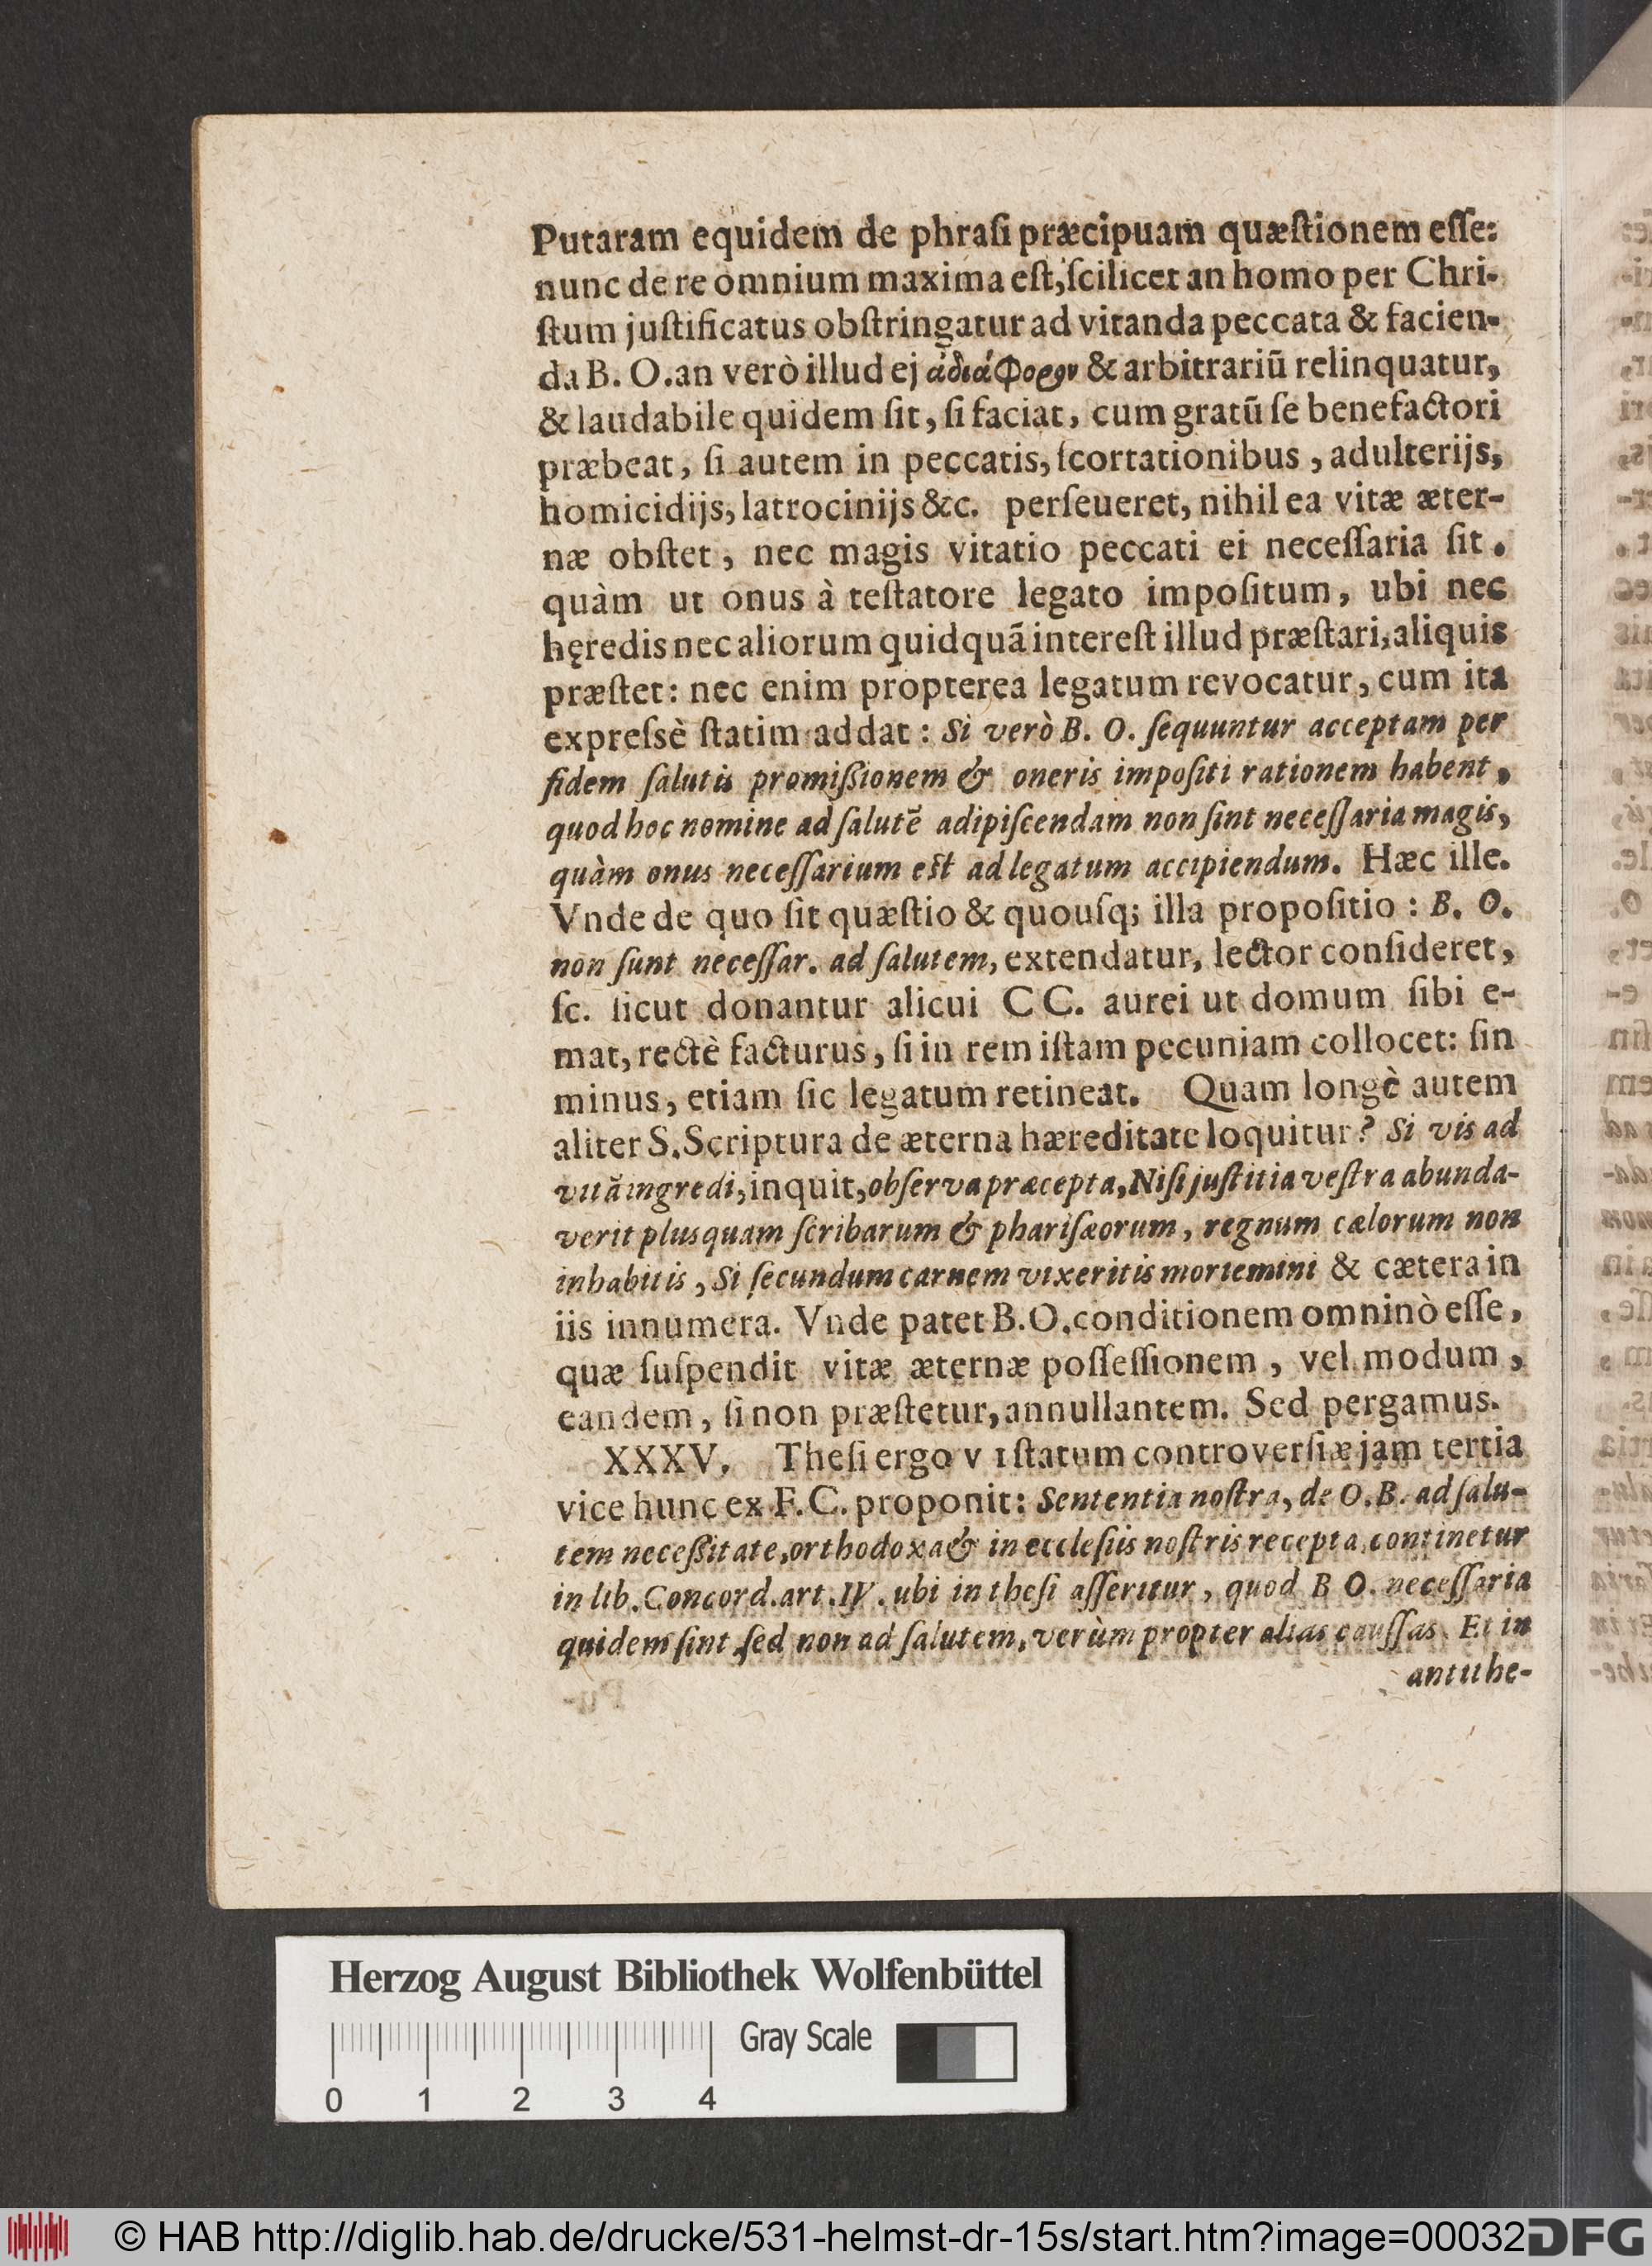 Putaram equidem de phraſi præcipuam quæſtionem eſſe:
nunc de re omnium maxima eſt, ſcilicet an homo per Chri-
ſtum juſtificatus obſtringatur ad vitanda peccata & facien-
da B. O. an verò illud ej ἀδιάφορον & arbitrariũ relinquatur,
& laudabile quidem ſit, ſi faciat, cum gratũ ſe benefactori
præbeat, ſi autem in peccatis, ſcortationibus, adulterijs,
homicidijs, latrocinijs &c. perſeueret, nihil ea vitæ æter-
næ obſtet, nec magis vitatio peccati ei neceſſaria ſit.
quàm ut onus à teſtatore legato impoſitum, ubi nec
hęredis nec aliorum quidquã intereſt illud præſtari, aliquis
præſtet: nec enim propterea legatum revocatur, cum ita
expreſsè ſtatim addat: Si verò B. O. ſequuntur acceptam per
fidem ſalutis promißionem & oneris impoſiti rationem habent,
quod hoc nomine ad ſalutẽ adipiſcendam non ſint neceſſaria magis,
quàm onus neceſſarium eſt ad legatum accipiendum. Hæc ille.
Vnde de quo ſit quæſtio & quouſq; illa propoſitio: B. O.
non ſunt neceſſar. ad ſalutem, extendatur, lector conſideret,
ſc. ſicut donantur alicui CC. aurei ut domum ſibi e-
mat, rectè facturus, ſi in rem iſtam pecuniam collocet: ſin
minus, etiam ſic legatum retineat. Quam longè autem
aliter S. Scriptura de æterna hæreditate loquitur? Si vis ad
vitã ingredi, inquit, obſerva præcepta, Niſi juſtitia veſtra abunda-
verit plus quam ſcribarum & phariſæorum, regnum cælorum non
inhabitis, Si ſecundum carnem vixeritis moriemini & cætera in
iis innumera. Vnde patet B. O. conditionem omninò eſſe,
quæ ſuſpendit vitæ æternæ poſſeſſionem, vel modum,
eandem, ſi non præſtetur, annullantem. Sed pergamus.
XXXV. Theſi ergo v I ſtatum controverſiæ jam tertia
vice hunc ex F. C. proponit: Sententia noſtra, de O. B. ad ſalu-
tem neceßitate, orthodoxa & in eccleſiis noſtris recepta continetur
in lib. Concord. art. IV. ubi in theſi aſſeritur, quod B O. neceſſaria
quidem ſint, ſed non ad ſalutem, verùm propter alias cauſſas. Et in
antithe-
Herzog August Bibliothek Wolfenbüttel
Gray Scale
0 1 2 3 4
© HAB http://diglib.hab.de/drucke/531-helmst-dr-15s/start.htm?image=00032
DFG